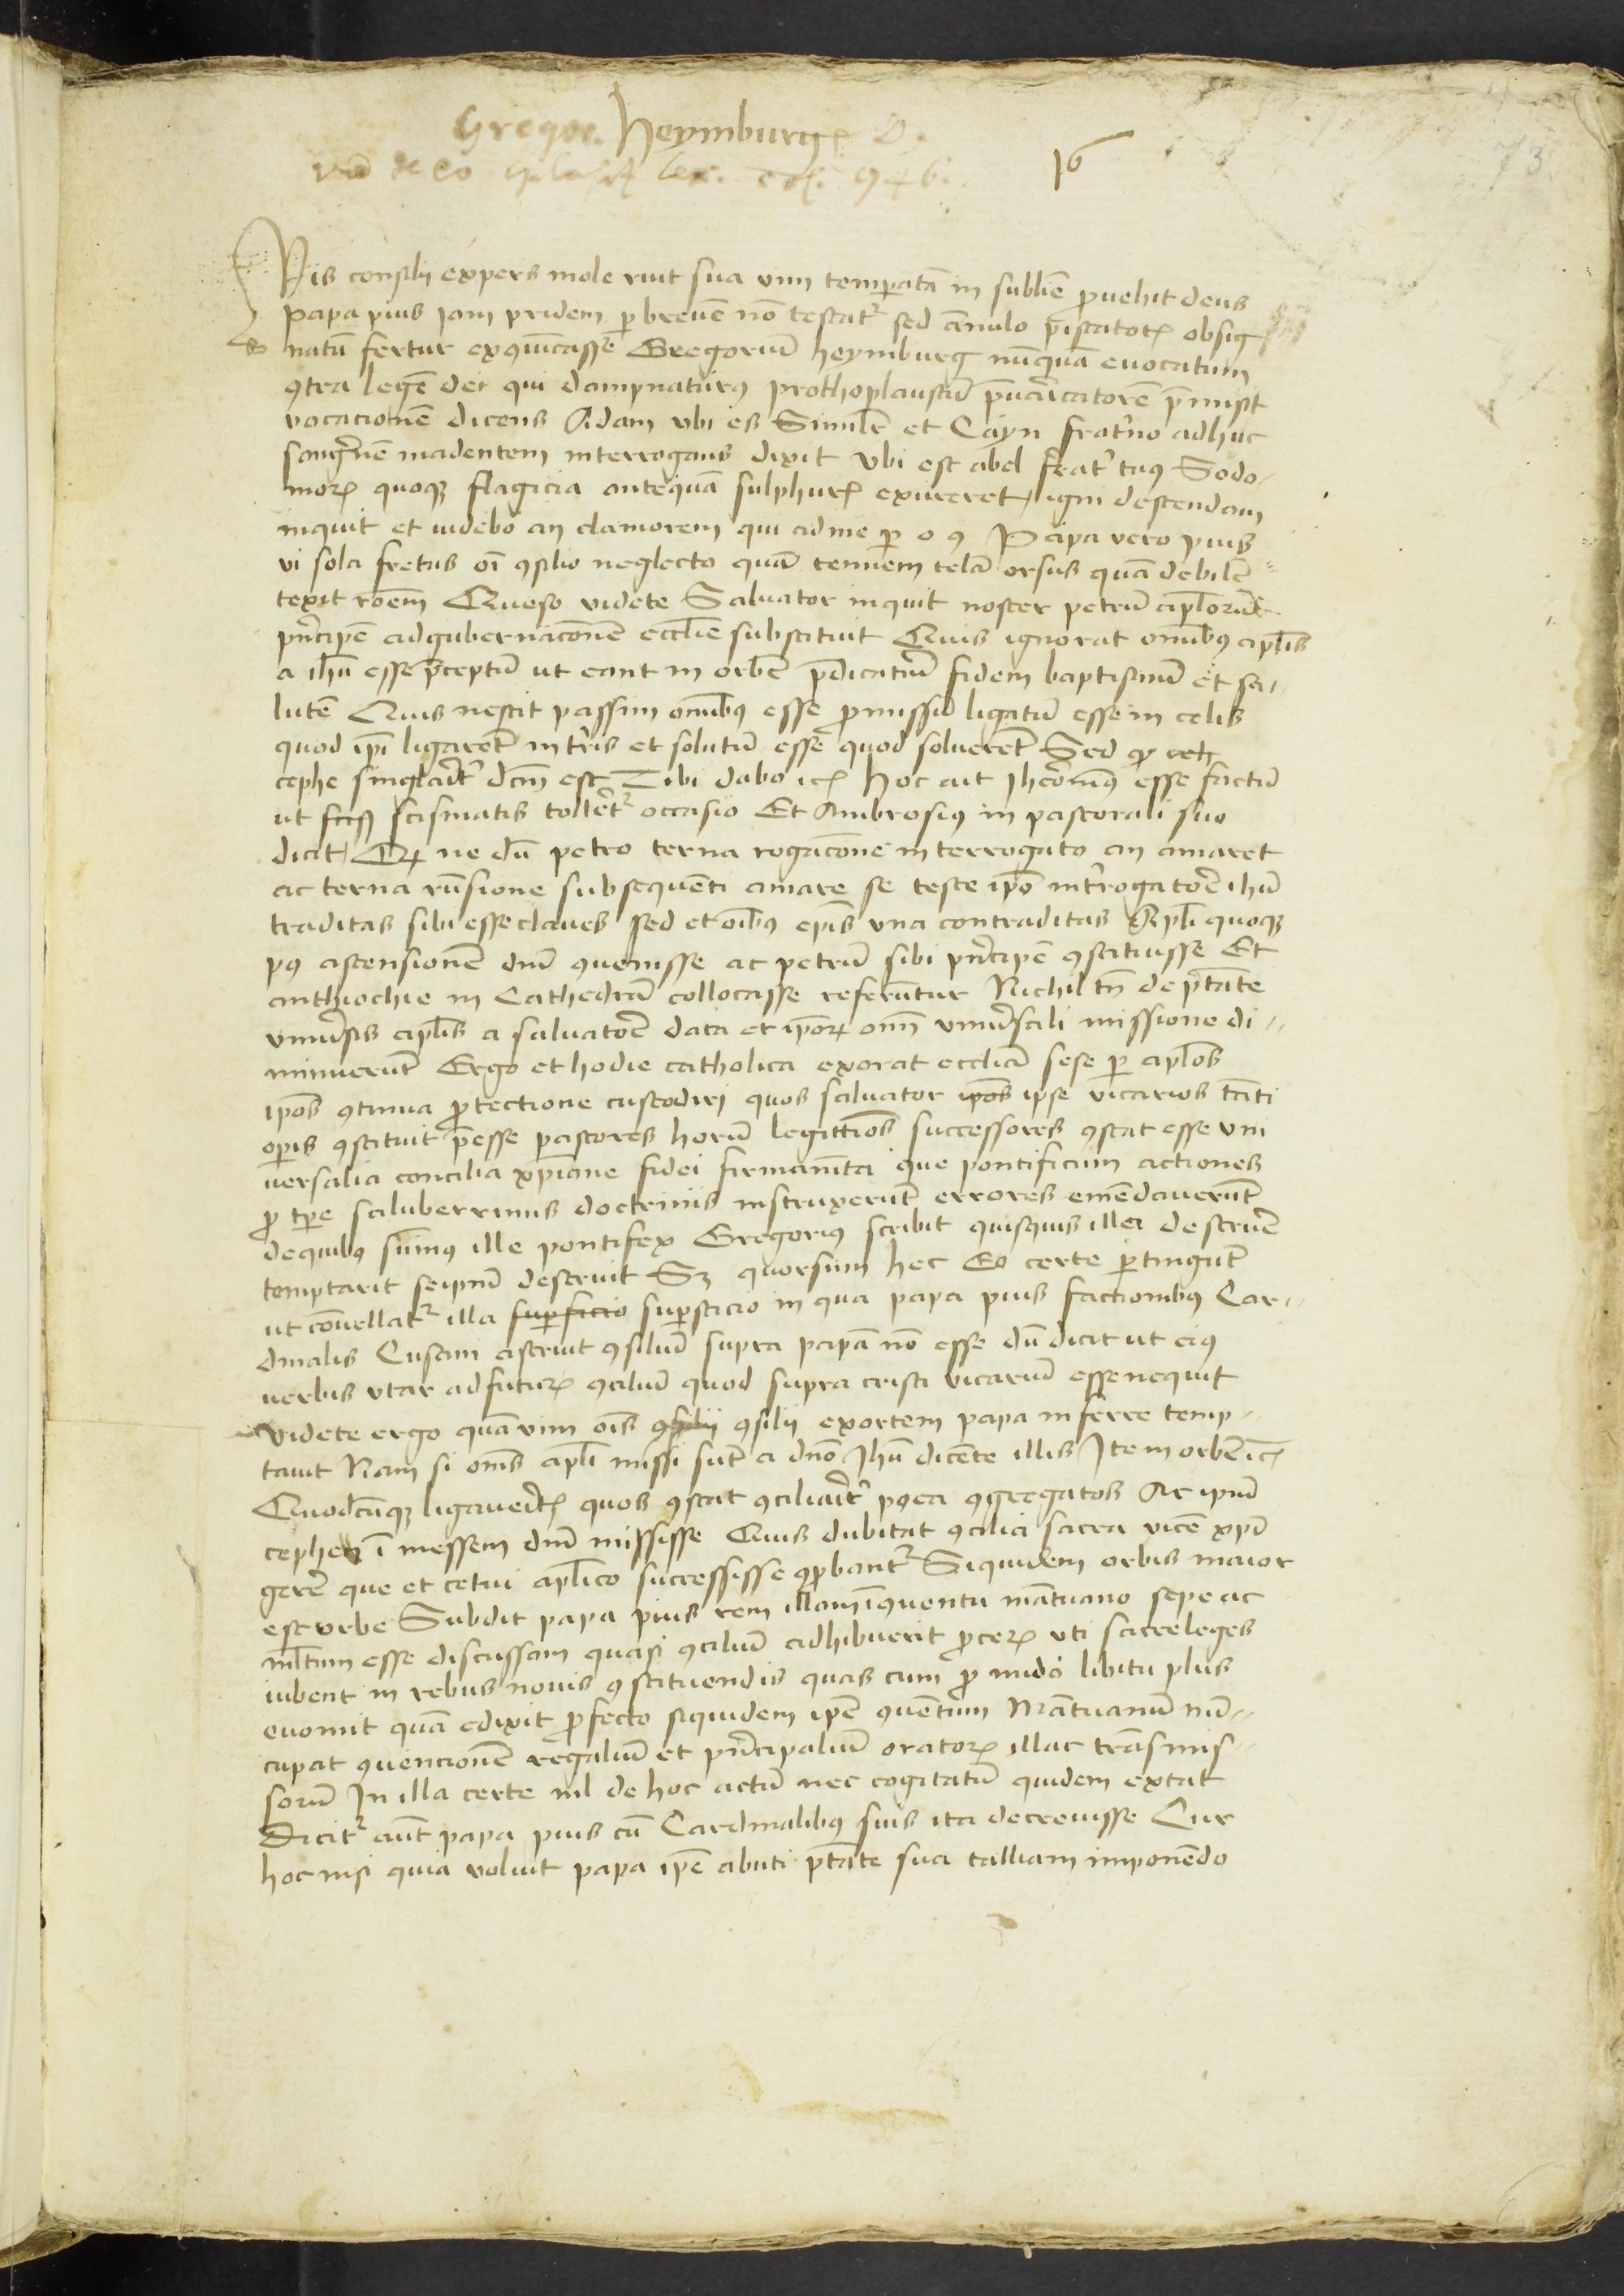 Gregor. Heymburg D.
16
73
Vis consilii expers mole ruit sua vim temperatā in sublime ꝓvehit deus
papa pius Jam pridem p brevē nō testatr sed Anulo piscatorꝭ obsig
natū fertur exꝯmūicasse Gregoriū heymburg nūquā evocatum
ꝯtra legē dei qui dampnaturꝰ prothoplaustū pvaricatorē pmisit
vocacionē dicens Adam vbi es Similr et Cayn frat'no adhuc
sanguīe madentem interrogans dixit Vbi est abel frat' tuꝰ Sodo-
morꝭ quoqꝫ flagicia antequā sulphurꝭ exureret igni descendam
inquit et videbo an clamorem qui ad me p o ꝯ Papa vero pius
vi sola fretus oī ꝯsilio neglecto quā tenuem telā orsus quā debilē
texit Queso videte Salvator inquit noster petrū aplorū
pncipē ad gubernacōnē ecclie substituit Quis ignorat omnibꝰ aplis
a ihu esse pceptū ut eant in orbē pdicatū fidem baptismū et sa-
lutē Quis nescit passim omnibꝰ esse ꝓmissū ligatū esse in celis
quod ipi ligarēt in t'ris et solutū esse quod solverēt Sed
cephe singlarit' dcm est Tibi dabo Hoc ait Jheronimꝰ esse factū
ut scismatis tollet' occasio Et Ambrosiꝰ in pastorali suo
dicit ne dū petro terna rogacōne interrogato an amaret
ac terna rūsione subsequenti amare se teste ipo int'rogatore ihu
traditas sibi esse claves sed et oibꝰ epis una contraditas Apli quoqꝫ
pꝰ ascensionē dni ꝯvenisse ac petrū sibi pncipē ꝯstituisse Et
anthiochie in Cathedrā collocasse referuntur Nichil tn de ptate
univsis aplis a salvatore data et ipor omn univsali missione di-
minuerūt Ergo et hodie catholica exorat ecclia sese p aplos
ipos ꝯtinua ꝓtectione custodiri quos salvator ipos ipse vicarios tāti
opis ꝯstituit pesse pastores horū legittios successores ꝯstat esse vni
versalia concilia xpiane fidei firmamta que pontificum actiones
ꝓ tpe saluberrimis doctrinis instruxerūt errores emēdaverūt
de quibꝰ sūmꝰ ille pontifex Gregoriꝰ scribit quisquis illa destruē
temptarit seipm destruit Sꝫ quorsum hec Eo certe ptingūt
ut cōvellat' illa supsticio in qua papa pius factionibꝰ Car-
dinalis Cusam astruit ꝯsiliū supra papā nō esse dū dicit ut eiꝰ
verbis utar ad futurꝭ ꝯciliū quod supra cristi vicariū esse nequit
Videte ergo quā vim ois ꝯsilii exortem papa inferre temp-
tavit Nam si oms apli missi sūt a dno Jhu dicēte illis Ite in orbē
Quodcūqꝫ ligaveritꝭ quos ꝯstat ꝯciliarit' pꝰea ꝯgregatos Ac ipm
cephen ī messem dni missise Quis dubitat ꝯcilia sacra vicē xpi
gerē que et cetui aplico successisse ꝯpbant' Siquidem orbis maior
est urbe Subdit papa pius rem illam ī ꝯventu mātuano sepe ac
mltum esse discussam quasi ꝯciliū adhibuerit ꝓcerꝭ uti sacre leges
iubent in rebus novis ꝯstituendis quas cum ꝓ nudo libitu plus
evomit quā edixit ꝓfecto siquidem ipe ꝯventum Mātuanū nū-
cupat ꝯvencionē regaliū et pncipaliū oratorꝭ illac trāsmis-
sorū In illa certe nil de hoc actū nec cogitatū quidem extat
Dicit' aut papa pius cū Cardinalibꝰ suis ita decrevisse Cur
hoc nisi quia voluit papa ipe abuti ptate sua talliam imponēdo